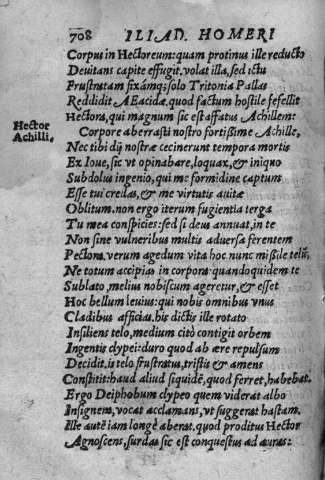 708 ILIAD. HOMERI
Corpus in Hectoreum: quam protinus ille reducto
Deuitans capite effugit, volat illa, sed ictu
Frustratam fixámq; solo Tritonia Pallas
Reddidit AEacidæ, quod factum hostile fefellit
Hectora, qui magnum sic est affatus Achillem:
Hector
Achilli,
Corpore aberrasti nostro fortissime Achille,
Nec tibi dij nostræ cecinerunt tempora mortis
Ex Ioue, sic vt opinabare, loquax, & iniquo
Subdolus ingenio, qui me formidine captum
Esse tui credas, & me virtutis auitæ
Oblitum. non ergo iterum fugientia terga
Tu mea conspicies: sed si deus annuat, in te
Non sine vulneribus multis aduersa ferentem
Pectora. verum agedum vita hoc nunc missile telũ,
Ne totum accipias in corpora quandoquidem te
Sublato, melius nobiscum ageretur, & esset
Hoc bellum leuius: qui nobis omnibus vnus
Cladibus afficias. his dictis ille rotato
Insiliens telo, medium citò contigit orbem
Ingentis clypei: duro quod ab ære repulsum
Decidit. is telo frustratus, tristis & amens
Constitit: haud aliud siquidẽ, quod ferret, habebat.
Ergo Deiphobum clypeo quem viderat albo
Insignem, vocat acclamans, vt suggerat hastam.
Ille autẽ iam longè aberat. quod proditus Hector
Agnoscens, surdas sic est conquestus ad auras: